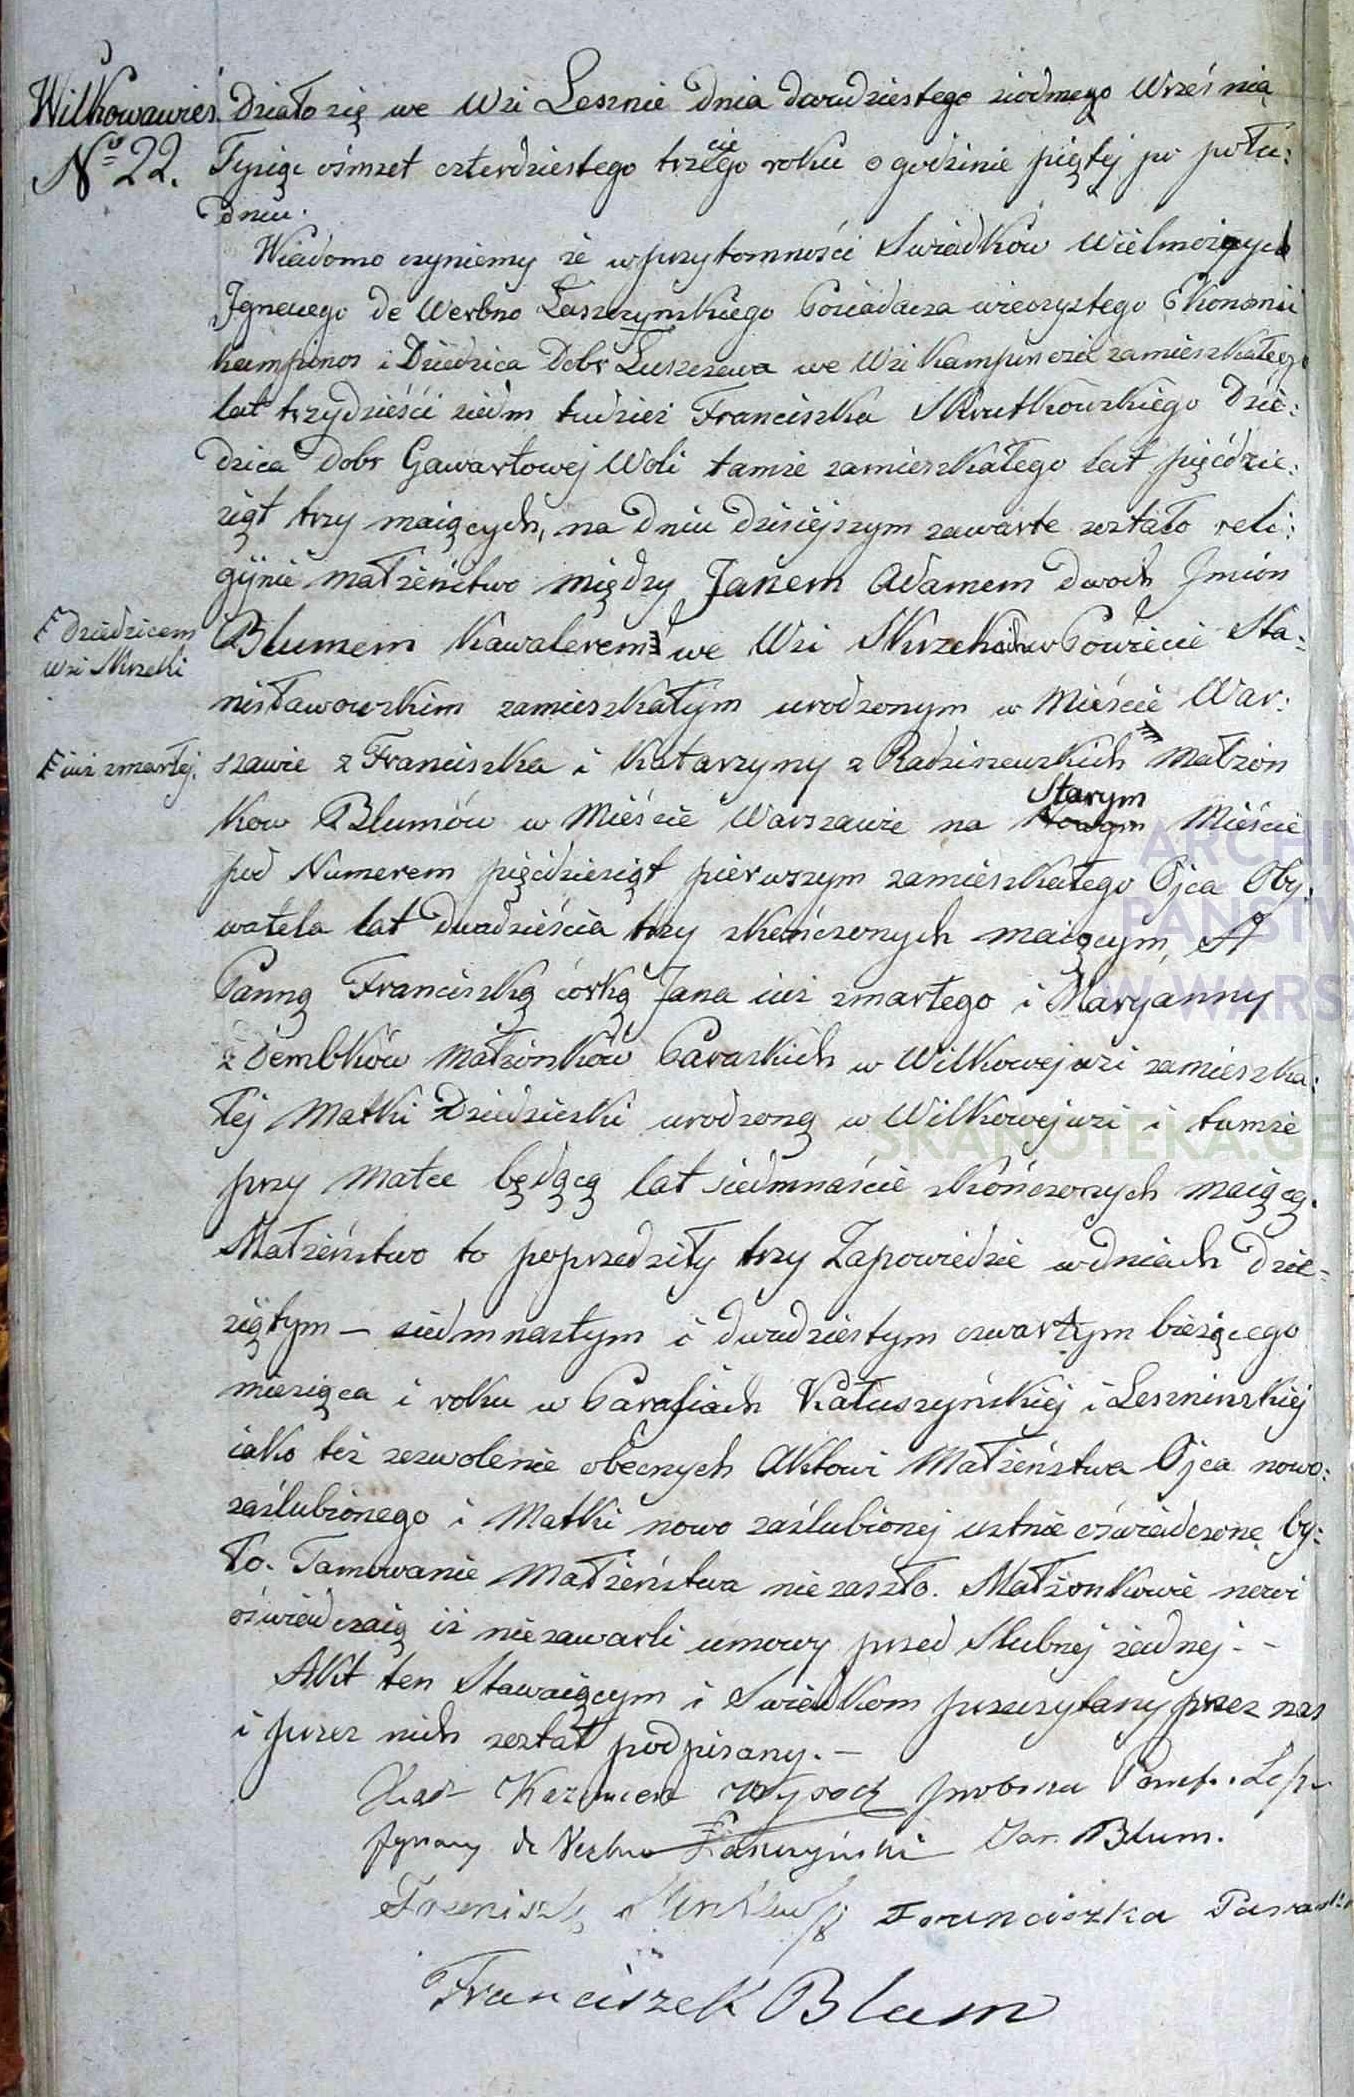 Wilkowawieś
No 22.
Działo się we Wsi Lesznie dnia dwudziestego siódmego Wrześnią
Tysiąc ośmset czterdziestego trzeciego roku o godzinie piątej po połu:
dniu.
Wiadomo czyniemy że w przytomności Swiadków Wielmożnych
Ignacego de Werbno Łaszczynskiego Posiadacza wieczystego Ekonomii
kampinos i Dziedzica Dobr Łuszczewa we Wsi Kampinosie zamieszkałego
lat trzydzieści siedm tudzież Franciszka Skrutkowskiego Dzie:
dzica Dobr Gawartowej Woli tamże zamieszkałego lat pięćdzie:
siąt trzy maiących, na dniu dzisiejszym zawarte zostało reli:
gijnie małżeństwo między Janem Adamem dwoch Imion
Blumem Kawalerem we Wsi Skrzekach w Powiecie Sta:
F dziedzicem
Wsi Skrzeki
nisławowskim zamieszkałym urodzonym w Mieście War:
szawie z Franciszka i Katarzyny z Radziszewskich Małżon
F iuż zmarłej.
Starym
kow Blumów w Mieście Warszawie na Nowym Mieście
pod Numerem pięćdziesiąt pierwszym zamieszkałego Ojca Oby:
watela lat dwadzieścia trzy skończonych maiącym, A
Panną Franciszką córką Jana iuż zmarłego i Maryanny
z Dembków Małżonków Paraskich w Wilkowejwsi zamieszka:
łej Matki Dziedziczki urodzoną w Wilkowejwsi i tamże
przy Matce będącą lat siedmnaście skończonych maiącą.
Małżeństwo to poprzedziły trzy Zapowiedzie w dniach dzie:
siątym — siedmnastym i dwudziestym czwartym bieżącego
miesiąca i roku w Parafiach Kałuszyńskiej i Lesznińskiej
iako też zezwolenie obecnych Aktowi Małżeństwa Ojca nowo:
zaślubionego i Matki nowo zaślubionej ustnie oświadczone by:
ło. Tamowanie Małżeństwa nie zaszło. Małżonkowie nowi
oświadczaią iż nie zawarli umowy przed Slubnej żadnej. -
Akt ten Stawaiącym i Swiadkom przeczytany przez nas
i przez nich został podpisany. —
Xiądz Kazimierz proboszcz
Ignacy de Werbno Łaszczyński Jan Blum.
Franciszka Paraska
Franciszek Blum
ARCHIW
PAŃSTW
W WARS
SKANOTEKA.GE